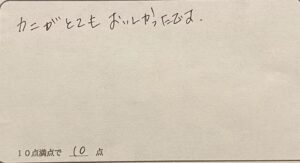 カニがとてもおいしかったです.
10点満点で 10 点